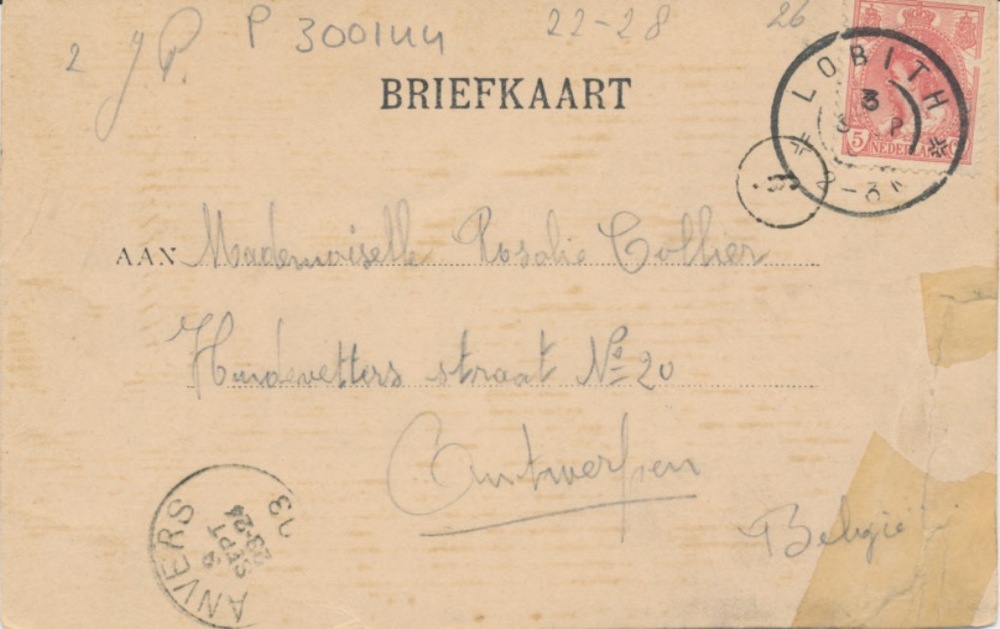 2 J P. P 300144 22-28 26
BRIEFKAART
LOBITH
3
5 NEDERLAND
AAN Mademoiselle Rosalie Collier
Huidevetters straat No 20
Antwerpen
België
ANVERS
SEPT
23-24
03